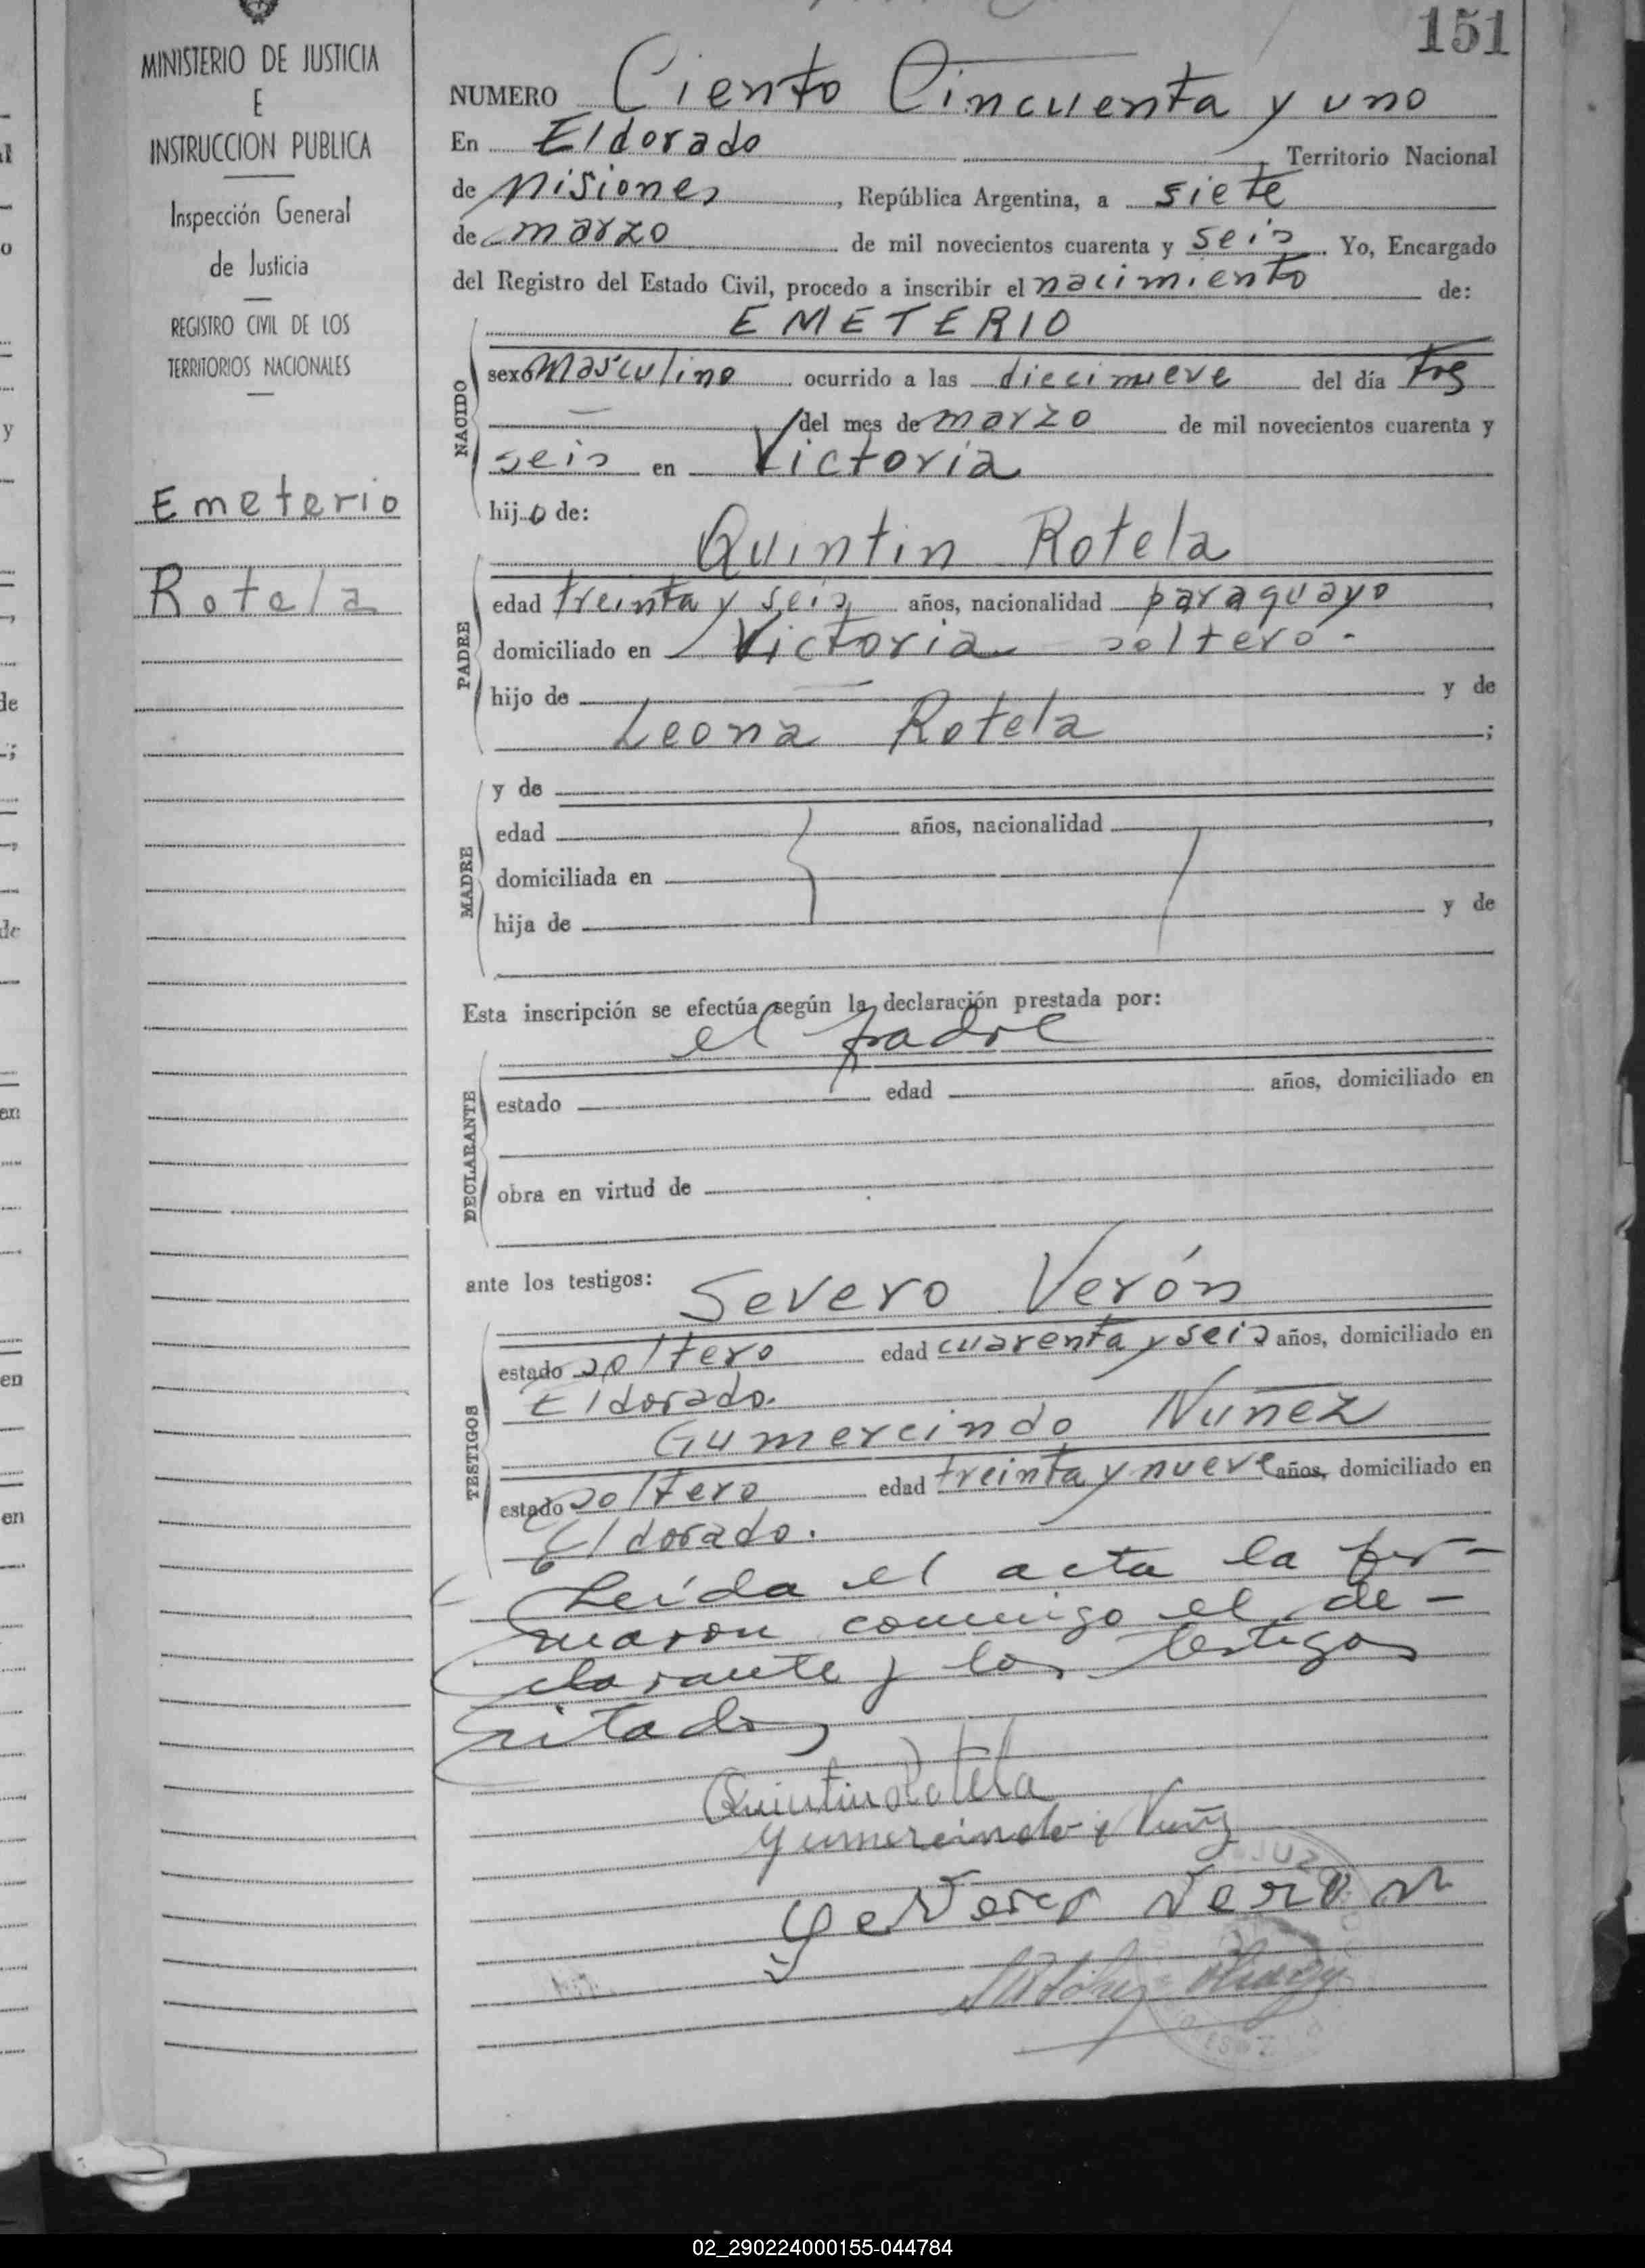 151
MINISTERIO DE JUSTICIA
E
INSTRUCCION PUBLICA
Inspección General
de Justicia
REGISTRO CIVIL DE LOS
TERRITORIOS NACIONALES
Emeterio
Rotela
NUMERO Ciento Cincuenta y uno
En Eldorado Territorio Nacional
de Misiones, República Argentina, a siete
de marzo de mil novecientos cuarenta y seis. Yo, Encargado
del Registro del Estado Civil, procedo a inscribir el nacimiento de:
EMETERIO
NACIDO
sexo Masculino ocurrido a las diecinueve del día tres
del mes de marzo de mil novecientos cuarenta y
seis en Victoria
hijo de:
Quintin Rotela
PADRE
edad treinta y seis años, nacionalidad paraguayo,
domiciliado en Victoria soltero.
hijo de y de
Leona Rotela ;
MADRE
y de
edad años, nacionalidad ,
domiciliada en
hija de y de
Esta inscripción se efectúa según la declaración prestada por:
el padre
DECLARANTE
estado edad años, domiciliado en
obra en virtud de
ante los testigos: Severo Verón
TESTIGOS
estado soltero edad cuarenta y seis años, domiciliado en
Eldorado.
Gumercindo Nuñez
estado soltero edad treinta y nueve años, domiciliado en
Eldorado.
Leída el acta la fir-
maron conmigo el de-
clarante y los testigos
citados
Quintin Rotela
Gumercindo Nuñz
Severo Veron
02_290224000155-044784